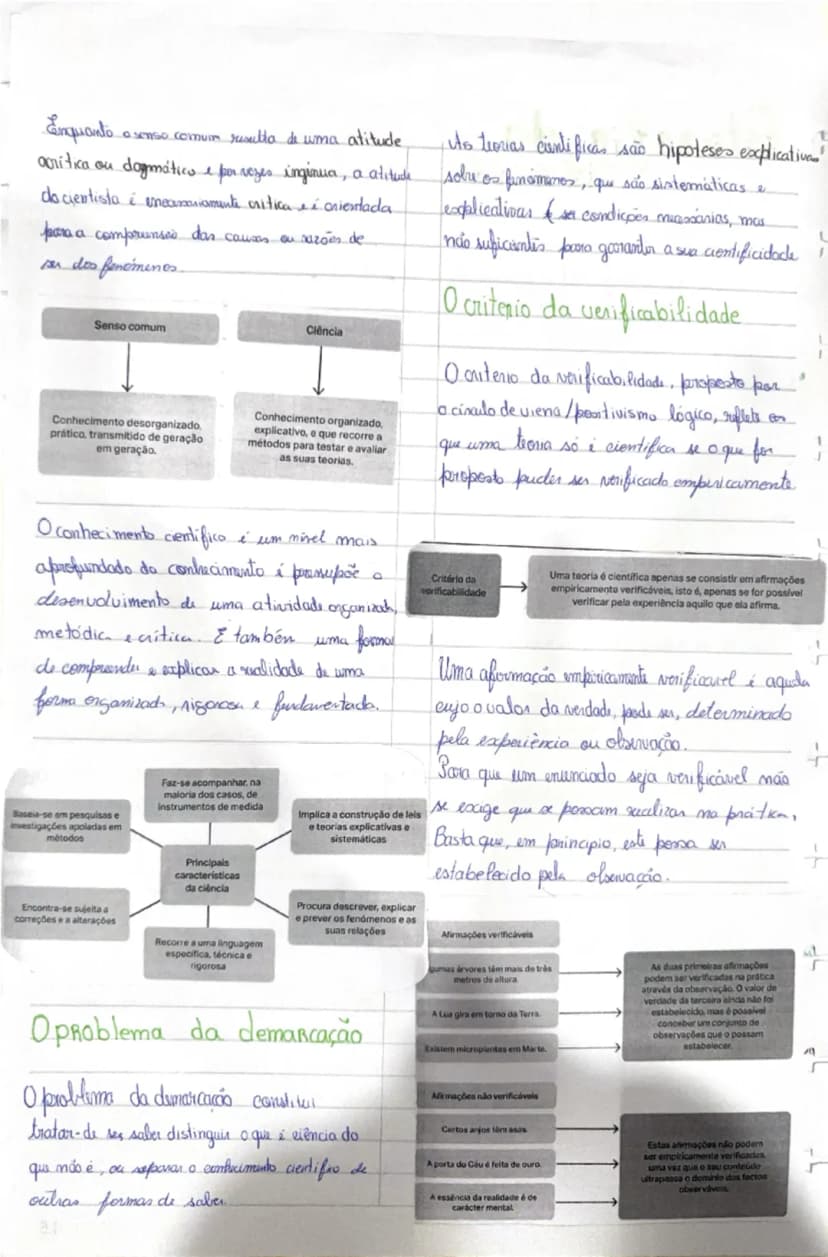 Enquanto o senso comum resulta de uma atitude
acrítica ou dogmático e por vezes ingénua, a atitude
do cientista é necessariamente crítica e é orientada
para a compreensão das causas ou razões de
ser dos fenómenos.
Senso comum
Ciência
Conhecimento desorganizado,
prático, transmitido de geração
em geração.
Conhecimento organizado,
explicativo, e que recorre a
métodos para testar e avaliar
as suas teorias.
O conhecimento científico é um nível mais
aprofundado do conhecimento é pressupõe o
desenvolvimento de uma atividade organizada,
metódica e crítica. É também uma forma
de compreender e explicar a realidade de uma
forma organizada, rigorosa e fundamentada.
Faz-se acompanhar, na
maioria dos casos, de
instrumentos de medida
Baseia-se em pesquisas e
investigações apoiadas em
métodos
Implica a construção de leis
e teorias explicativas e
sistemáticas
Principais
características
da ciência
Encontra-se sujeita a
correções e a alterações
Procura descrever, explicar
e prever os fenómenos e as
suas relações
Recorre a uma linguagem
específica, técnica e
rigorosa
O problema da demarcação
O problema da demarcação constitui
tratar-de ses saber distinguir o que é ciência do
que não é, ou separar o conhecimento científico de
outras formas de saber.
As teorias científicas são hipoteses explicativas
sobre os fenómenos, que são sistemáticas e
explicativas ser condições necessárias, mas
não suficientes para garantir a sua cientificidade
O criterio da verificabilidade
O criterio da verificabilidade, proposto por
o círculo de viena/positivismo lógico, reflete em
que uma teoria só é científica se o que for
proposto puder ser verificado empiricamente
Critério da
verificabilidade
Uma teoria é científica apenas se consistir em afirmações
empiricamente verificáveis, isto é, apenas se for possível
verificar pela experiência aquilo que ela afirma.
Uma afirmação empiricamente verificavel é aquela
cujo o valor da verdade, pode ser, determinado
pela experiência ou observação.
Para que um enunciado seja verificável não
se exige que se possam realizar na prática,
Basta que, em principio, este possa ser
estabelecido pela observação.
Afirmações verificáveis
Algumas árvores têm mais de três
metros de altura.
A Lua gira em torno da Terra.
Existem microplantas em Marte.
As duas primeiras afirmações
podem ser verificadas na prática
através da observação. O valor de
verdade da terceira ainda não foi
estabelecido, mas é possível
conceber um conjunto de
observações que o possam
estabelecer.
Afirmações não verificáveis
Certos anjos têm asas.
A porta do Céu é feita de ouro.
A essência da realidade é de
carácter mental.
Estas afirmações não podem
ser empiricamente verificadas,
uma vez que o seu conteúdo
ultrapassa o domínio dos factos
observáveis.